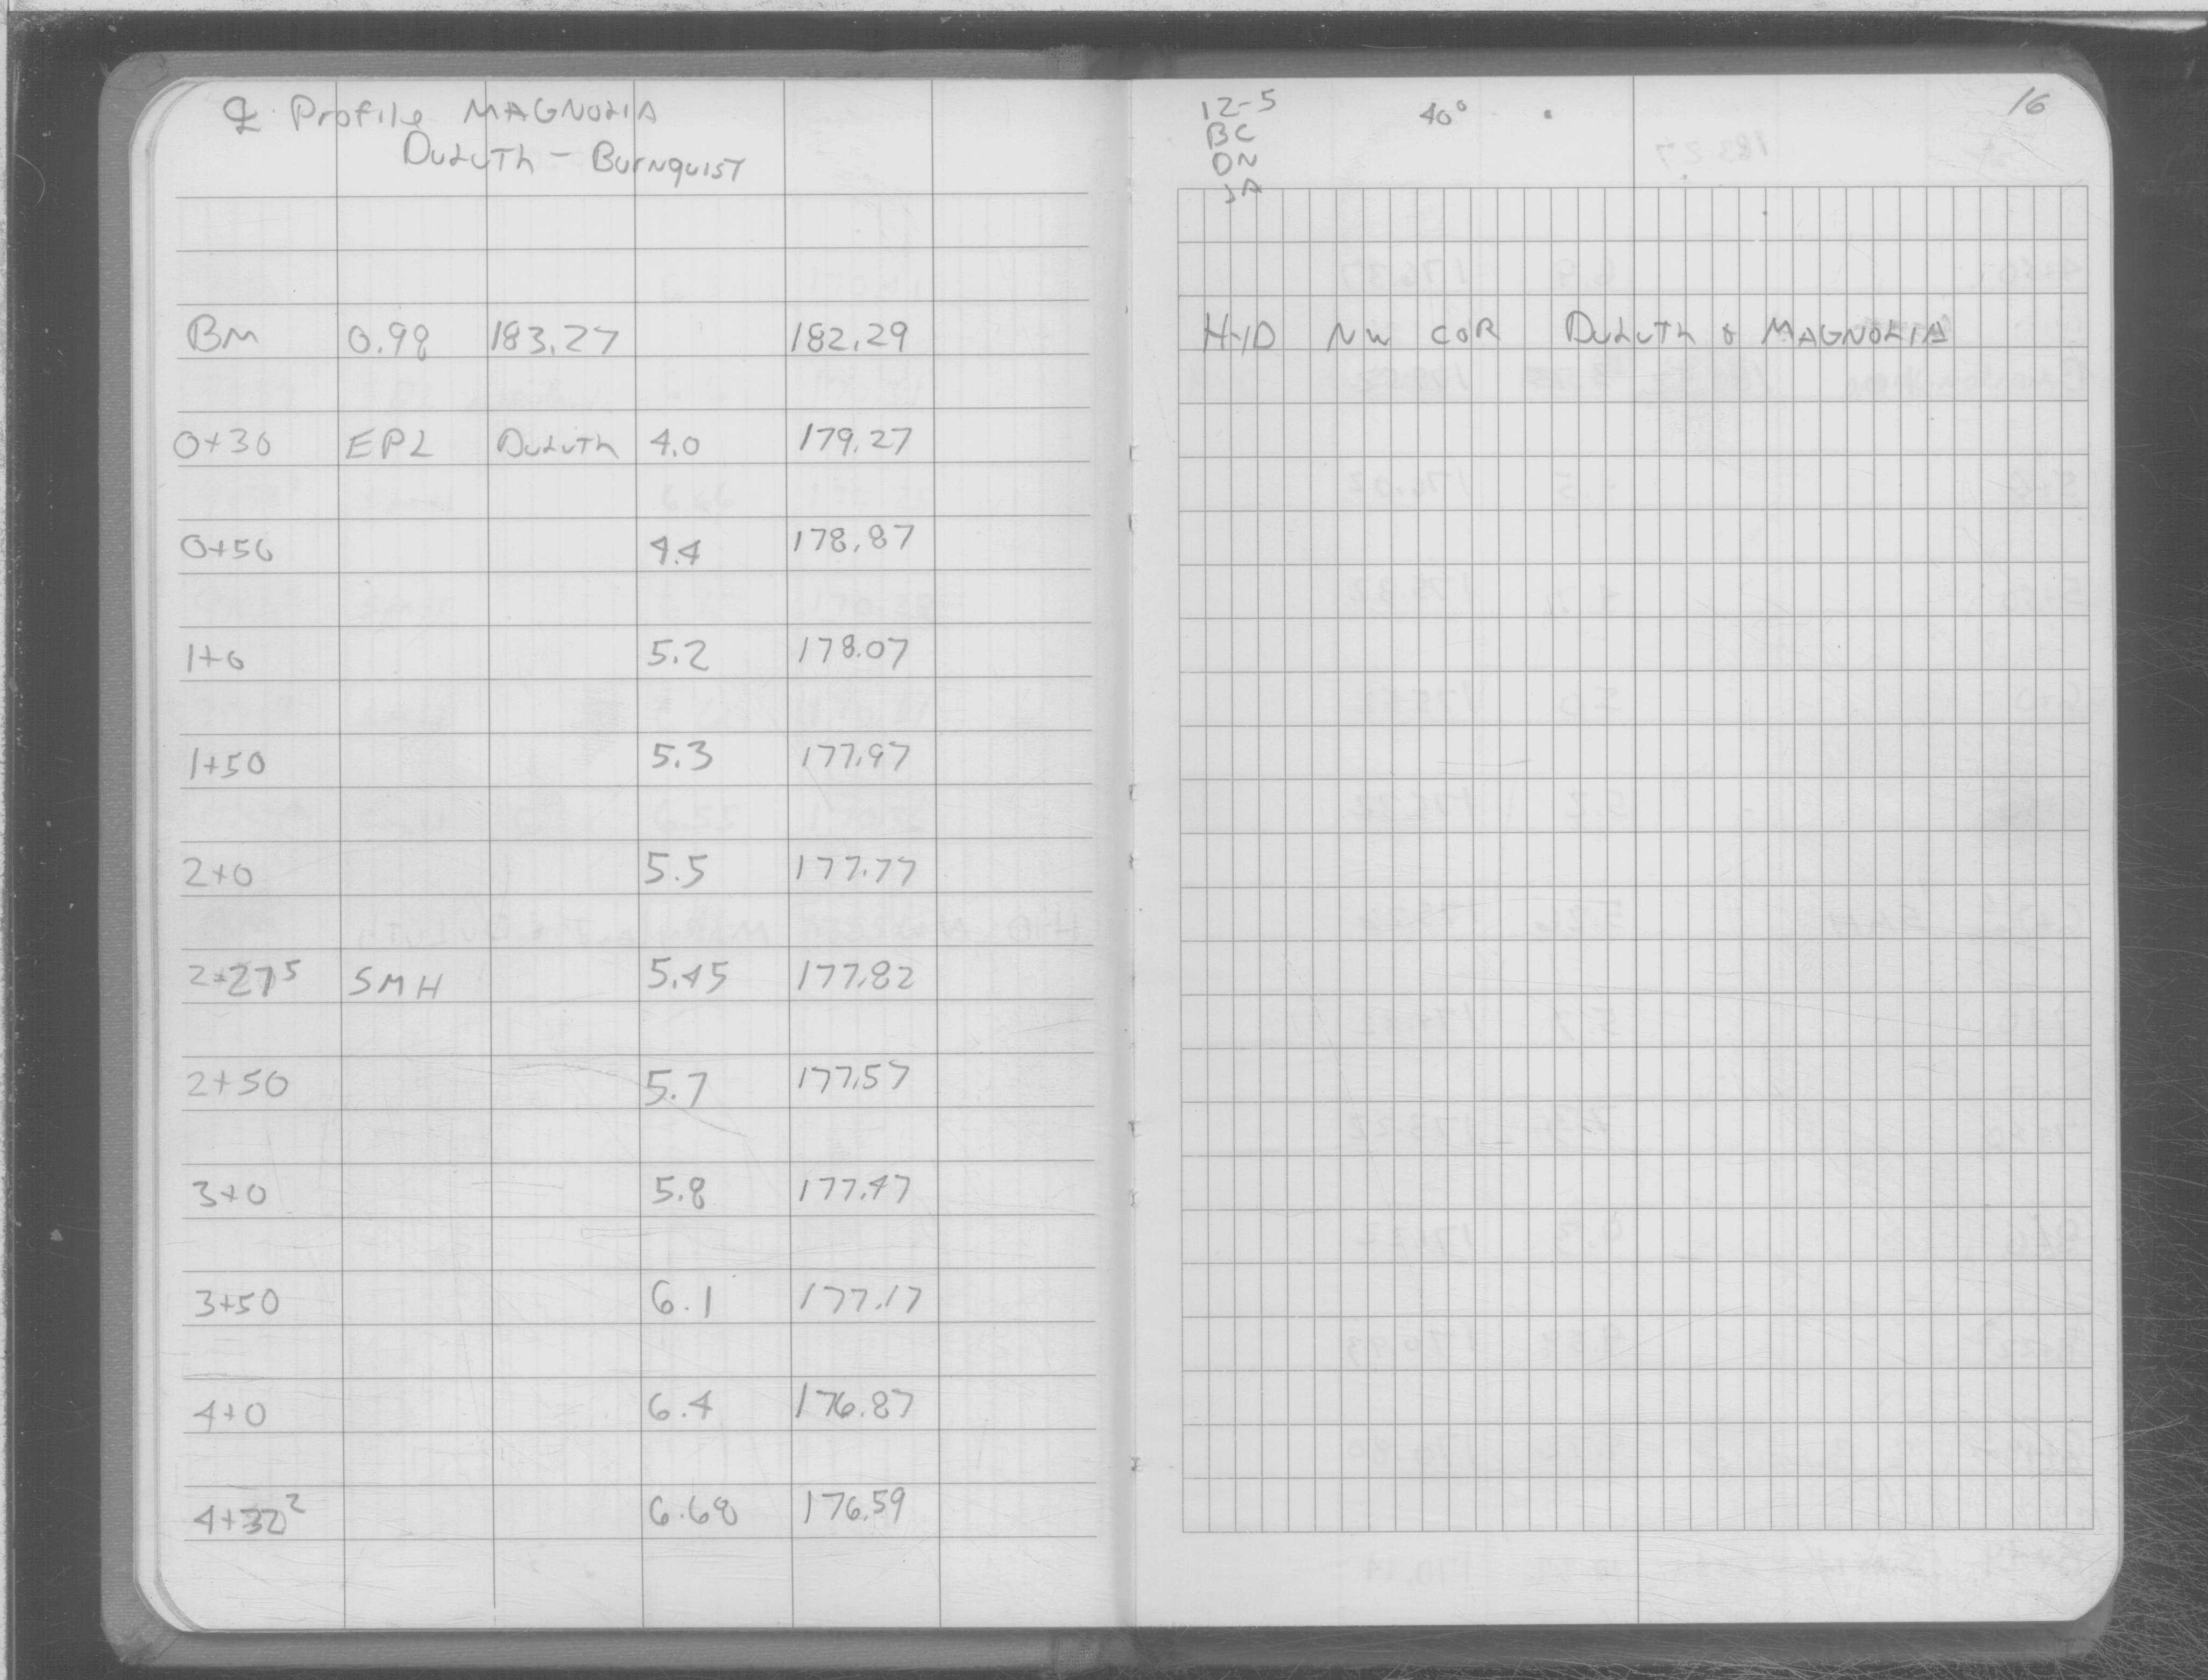 ℄ Profile MAGNOLIA
DULUTH - BURNQUIST
BM 0.98 183.27 182.29
0+30 EPL DULUTH 4.0 179.27
0+50 4.4 178.87
1+0 5.2 178.07
1+50 5.3 177.97
2+0 5.5 177.77
2+27⁵ SMH 5.45 177.82
2+50 5.7 177.57
3+0 5.8 177.47
3+50 6.1 177.17
4+0 6.4 176.87
4+32² 6.68 176.59
12-5 40° 16
BC
DN
JA
HYD NW COR DULUTH & MAGNOLIA